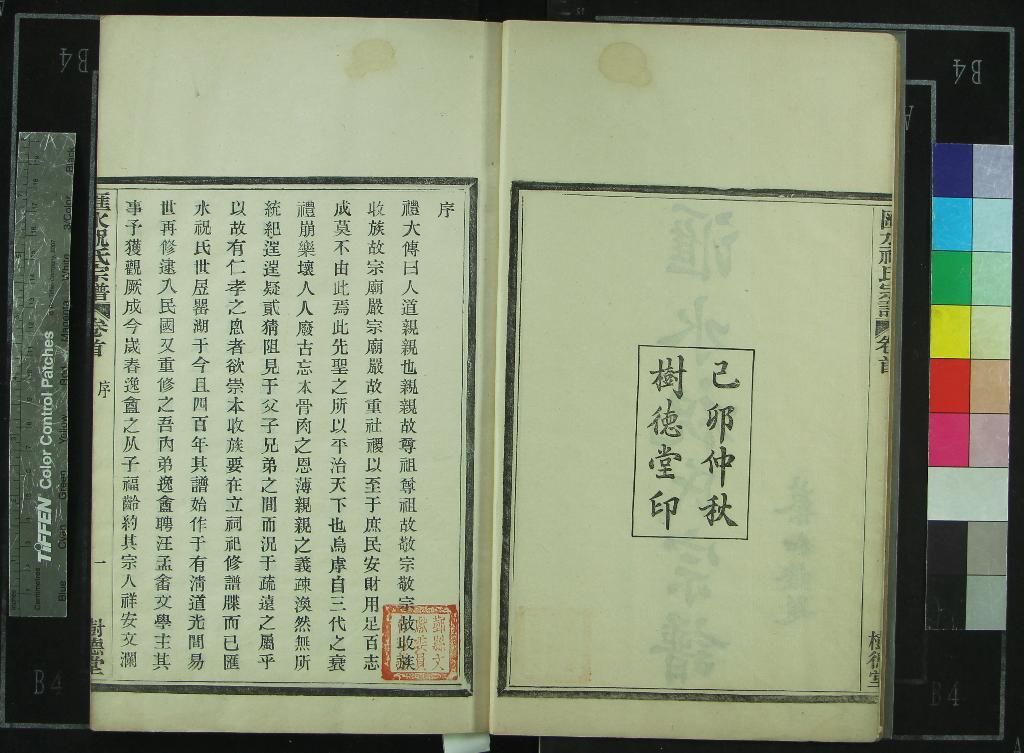 己卯仲秋
樹德堂印
樹德堂
序
禮大傳曰人道親親也親親故尊祖尊祖故敬宗敬宗故收族
收族故宗廟嚴宗廟嚴故重社禝以至于庶民安財用足百志
成莫不由此焉此先聖之所以平治天下也烏虖自三代之衰
禮崩樂壞人人廢古忘本骨肉之恩薄親親之義疎渙然無所
統紀逞逞疑貳猜阻見于父子兄弟之間而況于疏遠之屬乎
以故有仁孝之恖者欲崇本收族要在立祠祀修譜牒而已匯
水祝氏世凥罍湖于今且四百年其譜始作于有淸道光間易
世再修逮入民國又重修之吾內弟逸盦聘汪孟畬文學主其
事予獲觀厥成今歲春逸盦之从子福齡約其宗人祥安文瀾
匯水祝氏宗譜
卷首
序
一
樹德堂
B4
B4
B4
B4
TIFFEN Color Control Patches